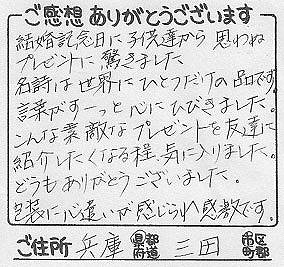 ご感想ありがとうございます
結婚記念日に子供達から思わぬ
プレゼントに驚きました
名詩は世界にひとつだけの品です。
言葉がすーっと心にひびきました。
こんな素敵なプレゼントを友達に
紹介したくなる程、気に入りました。
どうもありがとうございました。
包装に心遣いが感じられ感激です。
ご住所 兵庫 都道府県 三田 市区町郡